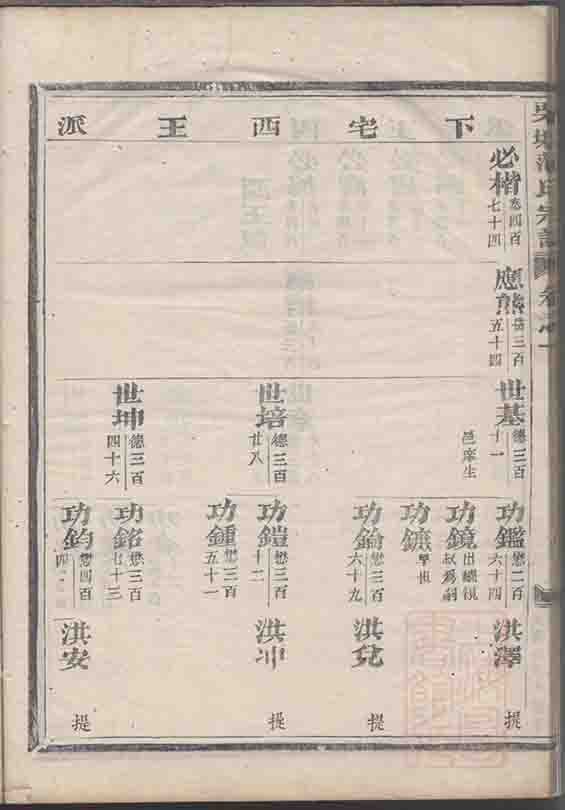 下宅西王派
必楷 懋四百七十四
應熊 懋三百五十四
世基 德三百十一 邑庠生
世培 德三百廿八
世坤 德三百四十六
功鑑 懋二百六十四
功鏡 出繼 叔為嗣
功鑣 早世
功鑰 懋三百六十九
功鎧 懋三百十二
功鍾 懋三百五十一
功銘 懋三百七十三
功鈞 懋四百四
洪澤 提
洪兒 提
洪冲 提
洪安 提
氏宗譜